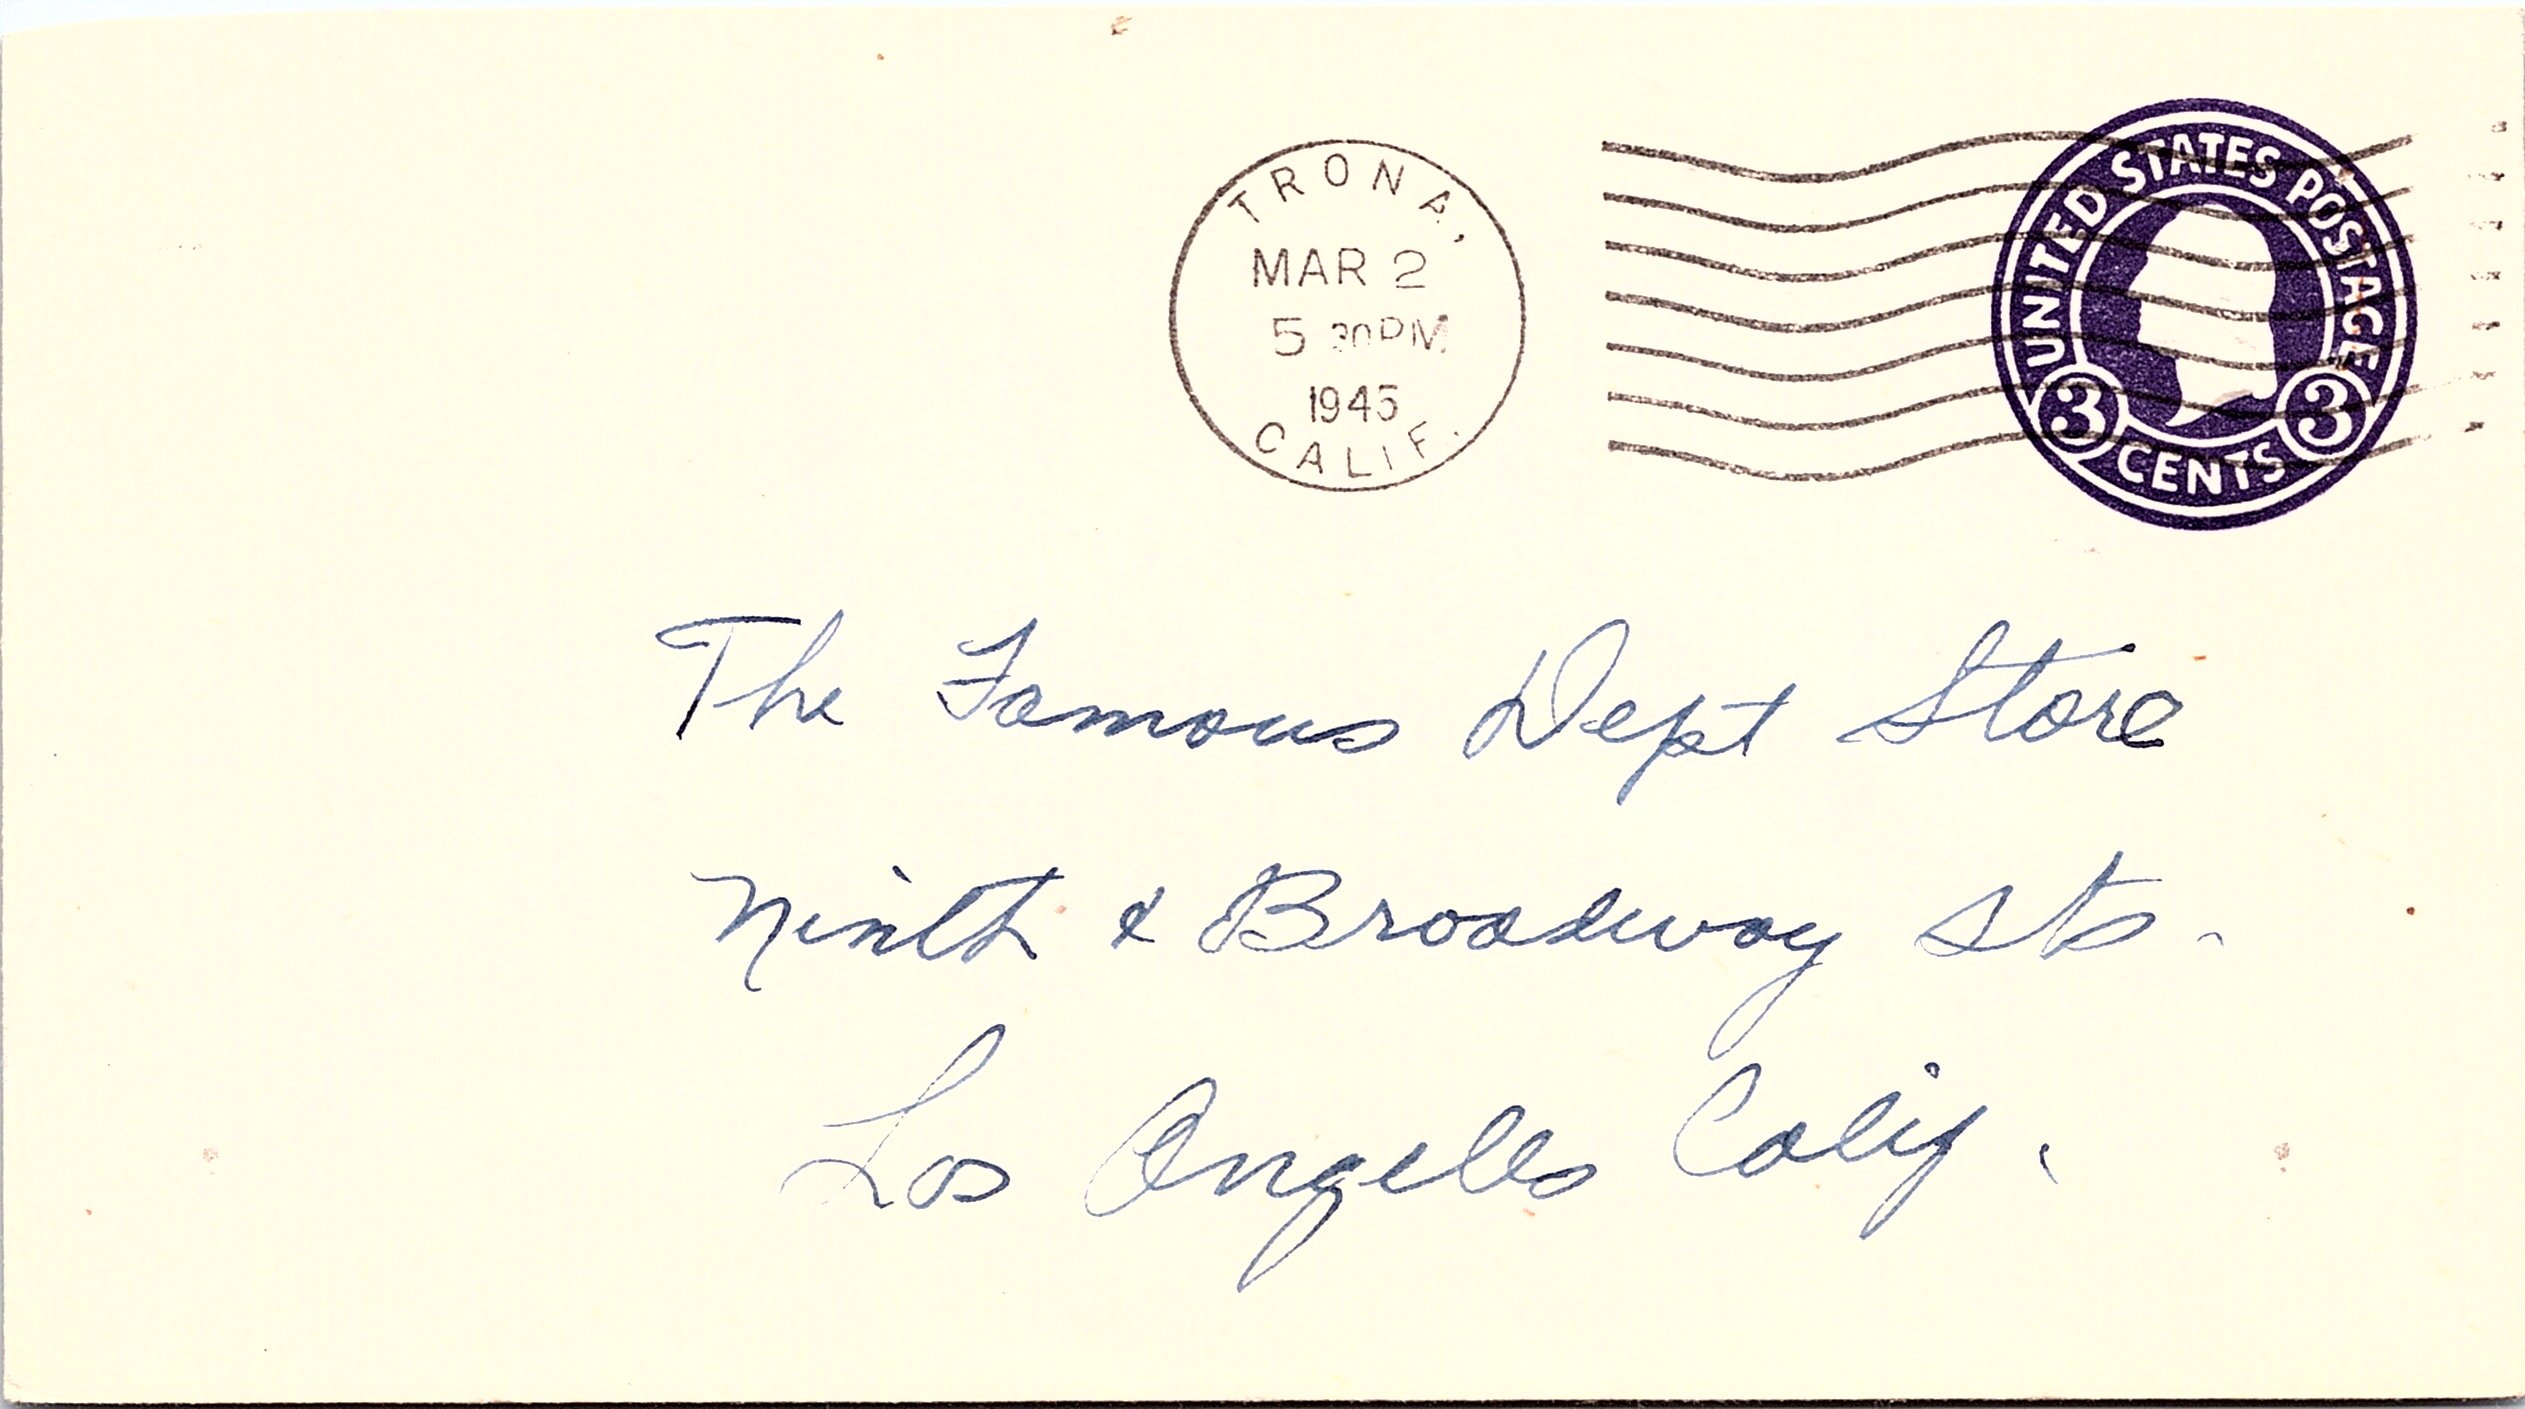 TRONA,
MAR 2
5 30PM
1945
CALIF.
UNITED STATES POSTAGE
3 CENTS 3
The Famous Dept Store
Ninth & Broadway Sts.
Los Angeles Calif.